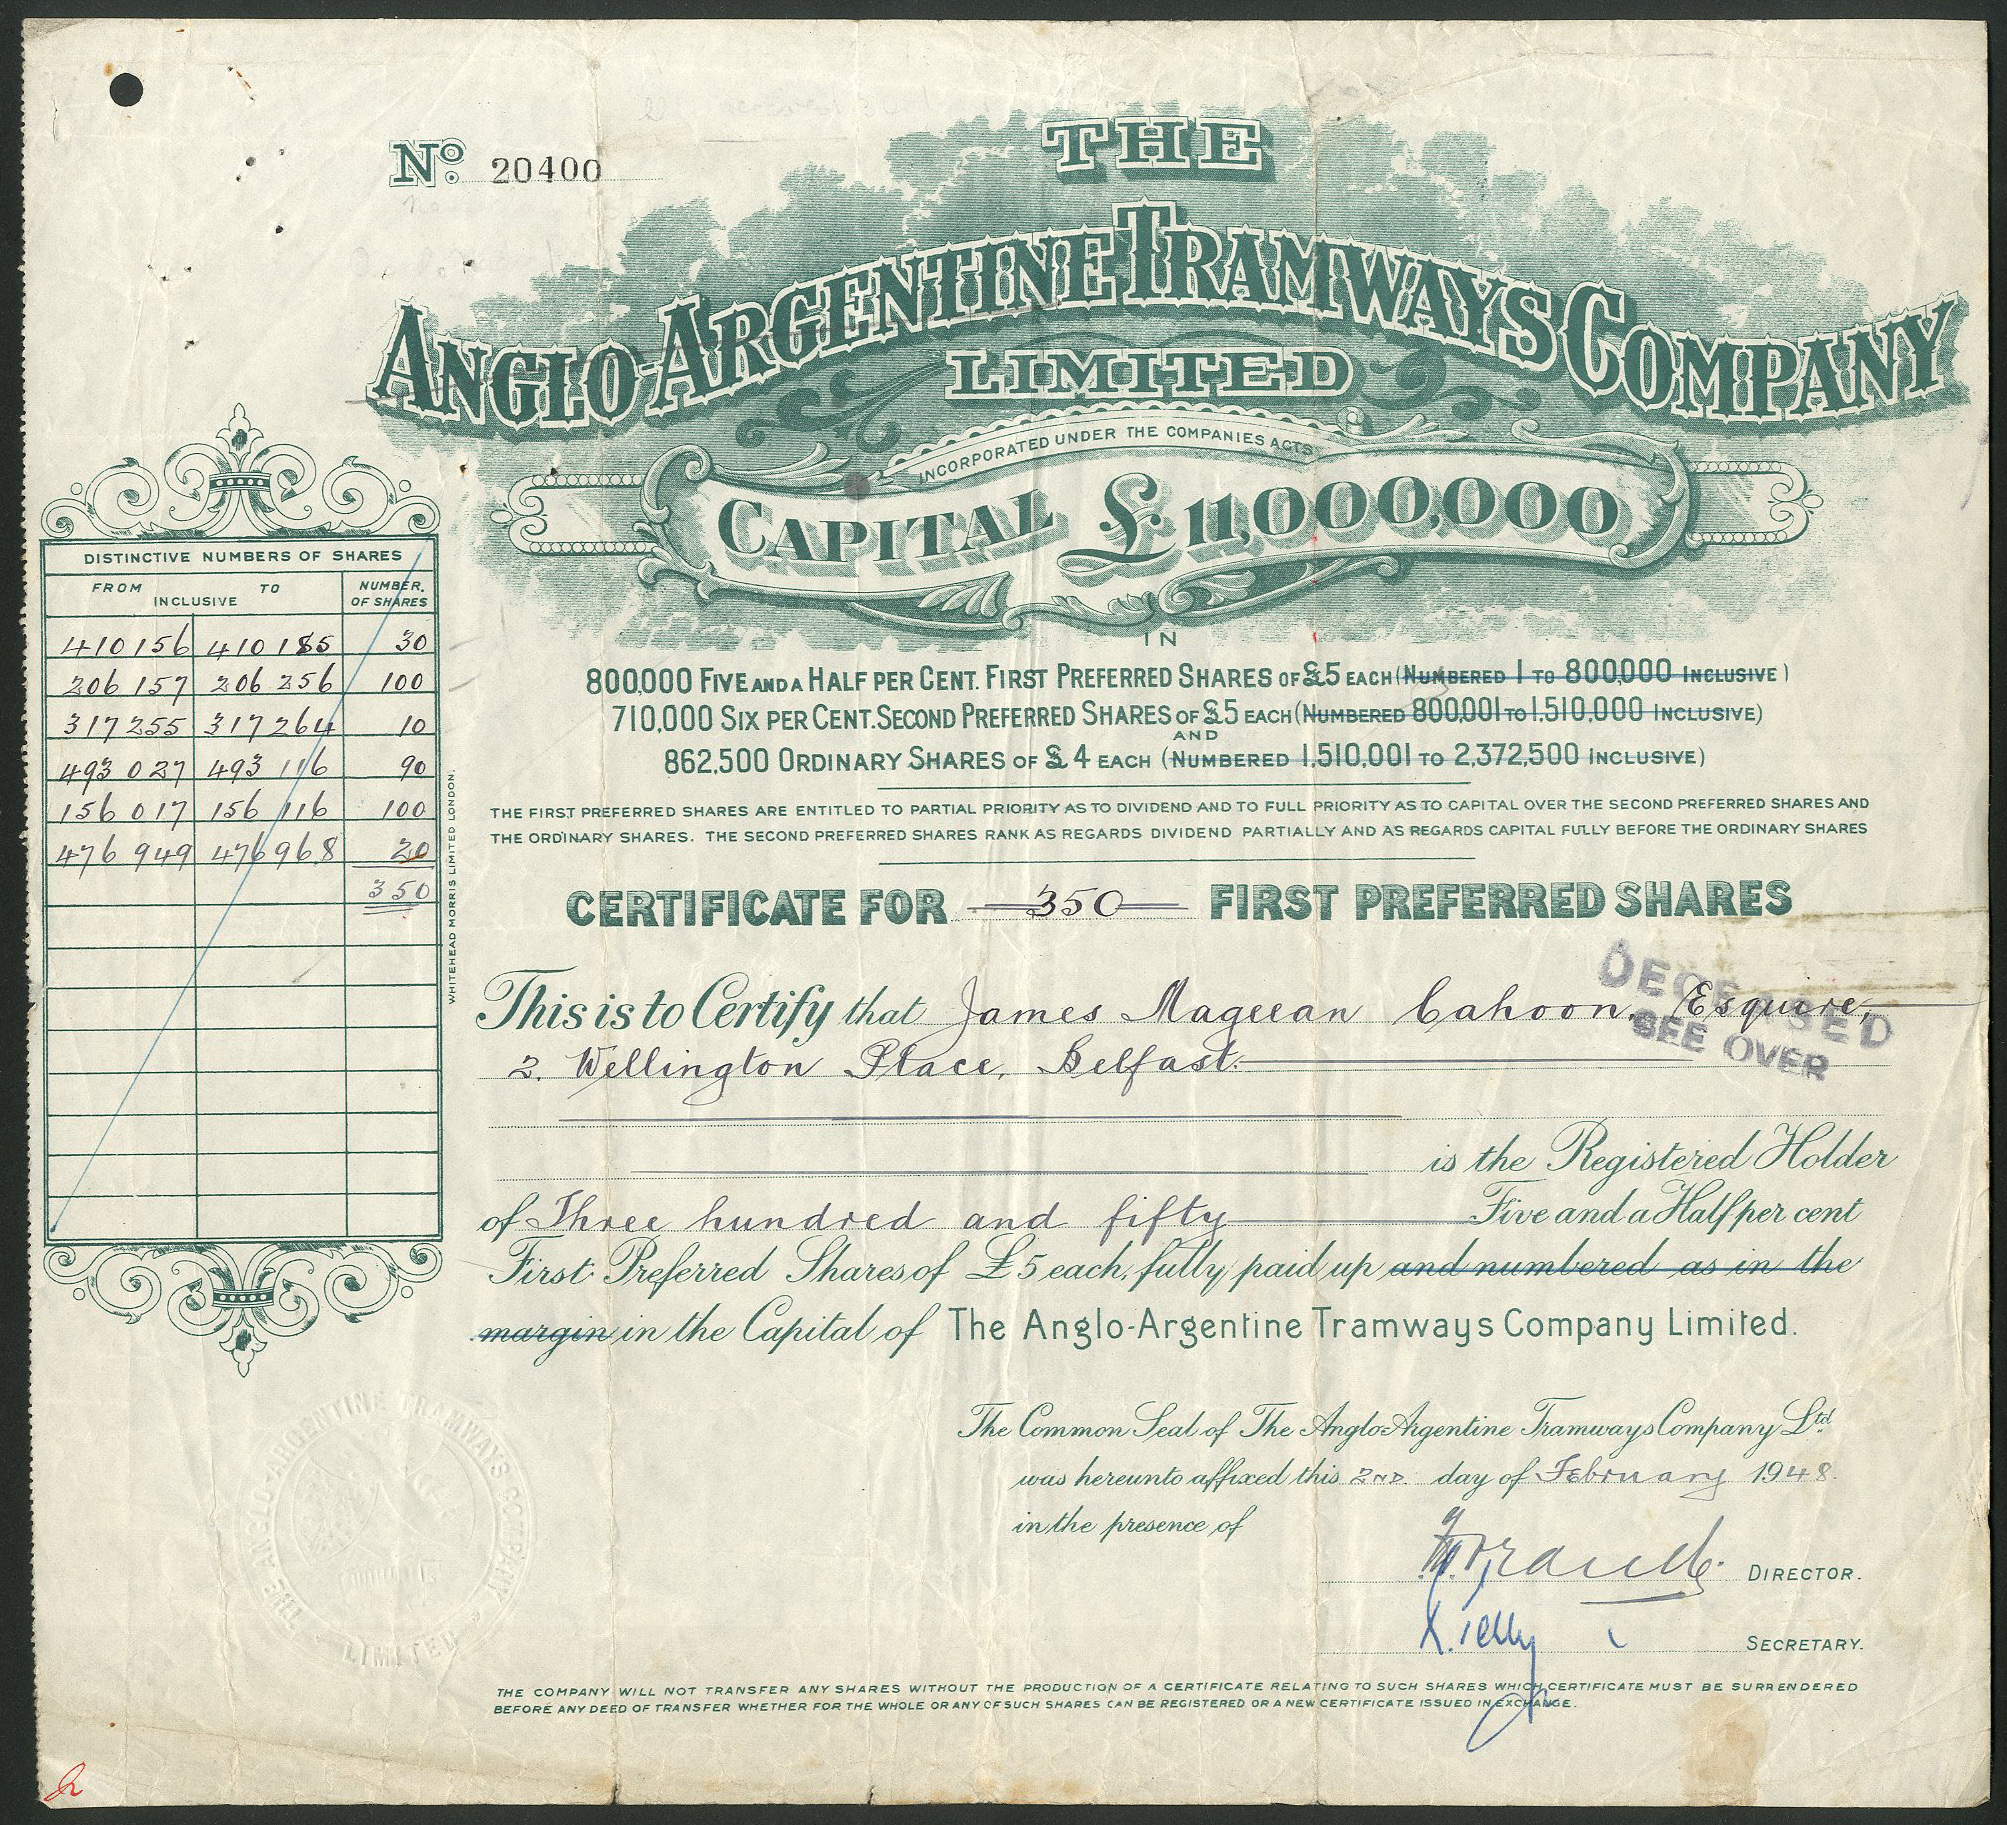 No. 20400
THE
ANGLO-ARGENTINE TRAMWAYS COMPANY
LIMITED
INCORPORATED UNDER THE COMPANIES ACTS
CAPITAL £11,000,000
IN
800,000 FIVE AND A HALF PER CENT. FIRST PREFERRED SHARES OF £5 EACH (NUMBERED 1 TO 800,000 INCLUSIVE)
710,000 SIX PER CENT. SECOND PREFERRED SHARES OF £5 EACH (NUMBERED 800,001 TO 1,510,000 INCLUSIVE)
AND
862,500 ORDINARY SHARES OF £4 EACH (NUMBERED 1,510,001 TO 2,372,500 INCLUSIVE)
THE FIRST PREFERRED SHARES ARE ENTITLED TO PARTIAL PRIORITY AS TO DIVIDEND AND TO FULL PRIORITY AS TO CAPITAL OVER THE SECOND PREFERRED SHARES AND
THE ORDINARY SHARES. THE SECOND PREFERRED SHARES RANK AS REGARDS DIVIDEND PARTIALLY AND AS REGARDS CAPITAL FULLY BEFORE THE ORDINARY SHARES
DISTINCTIVE NUMBERS OF SHARES
FROM TO NUMBER.
INCLUSIVE OF SHARES
410156 410185 30
206157 206256 100
317255 317264 10
493027 493116 90
156017 156116 100
476949 476968 20
350
WHITEHEAD MORRIS LIMITED LONDON.
CERTIFICATE FOR 350 FIRST PREFERRED SHARES
DECEASED
SEE OVER
This is to Certify that James Mageean Cahoon, Esquire,
2. Wellington Place, Belfast.
is the Registered Holder
of Three hundred and fifty Five and a Half per cent
First Preferred Shares of £5 each, fully paid up and numbered as in the
margin in the Capital of The Anglo-Argentine Tramways Company Limited.
The Common Seal of The Anglo-Argentine Tramways Company Ltd.
was hereunto affixed this 2ND. day of February 1948.
in the presence of
DIRECTOR.
SECRETARY.
THE ANGLO-ARGENTINE TRAMWAYS COMPANY
LIMITED
THE COMPANY WILL NOT TRANSFER ANY SHARES WITHOUT THE PRODUCTION OF A CERTIFICATE RELATING TO SUCH SHARES WHICH CERTIFICATE MUST BE SURRENDERED
BEFORE ANY DEED OF TRANSFER WHETHER FOR THE WHOLE OR ANY OF SUCH SHARES CAN BE REGISTERED OR A NEW CERTIFICATE ISSUED IN EXCHANGE.